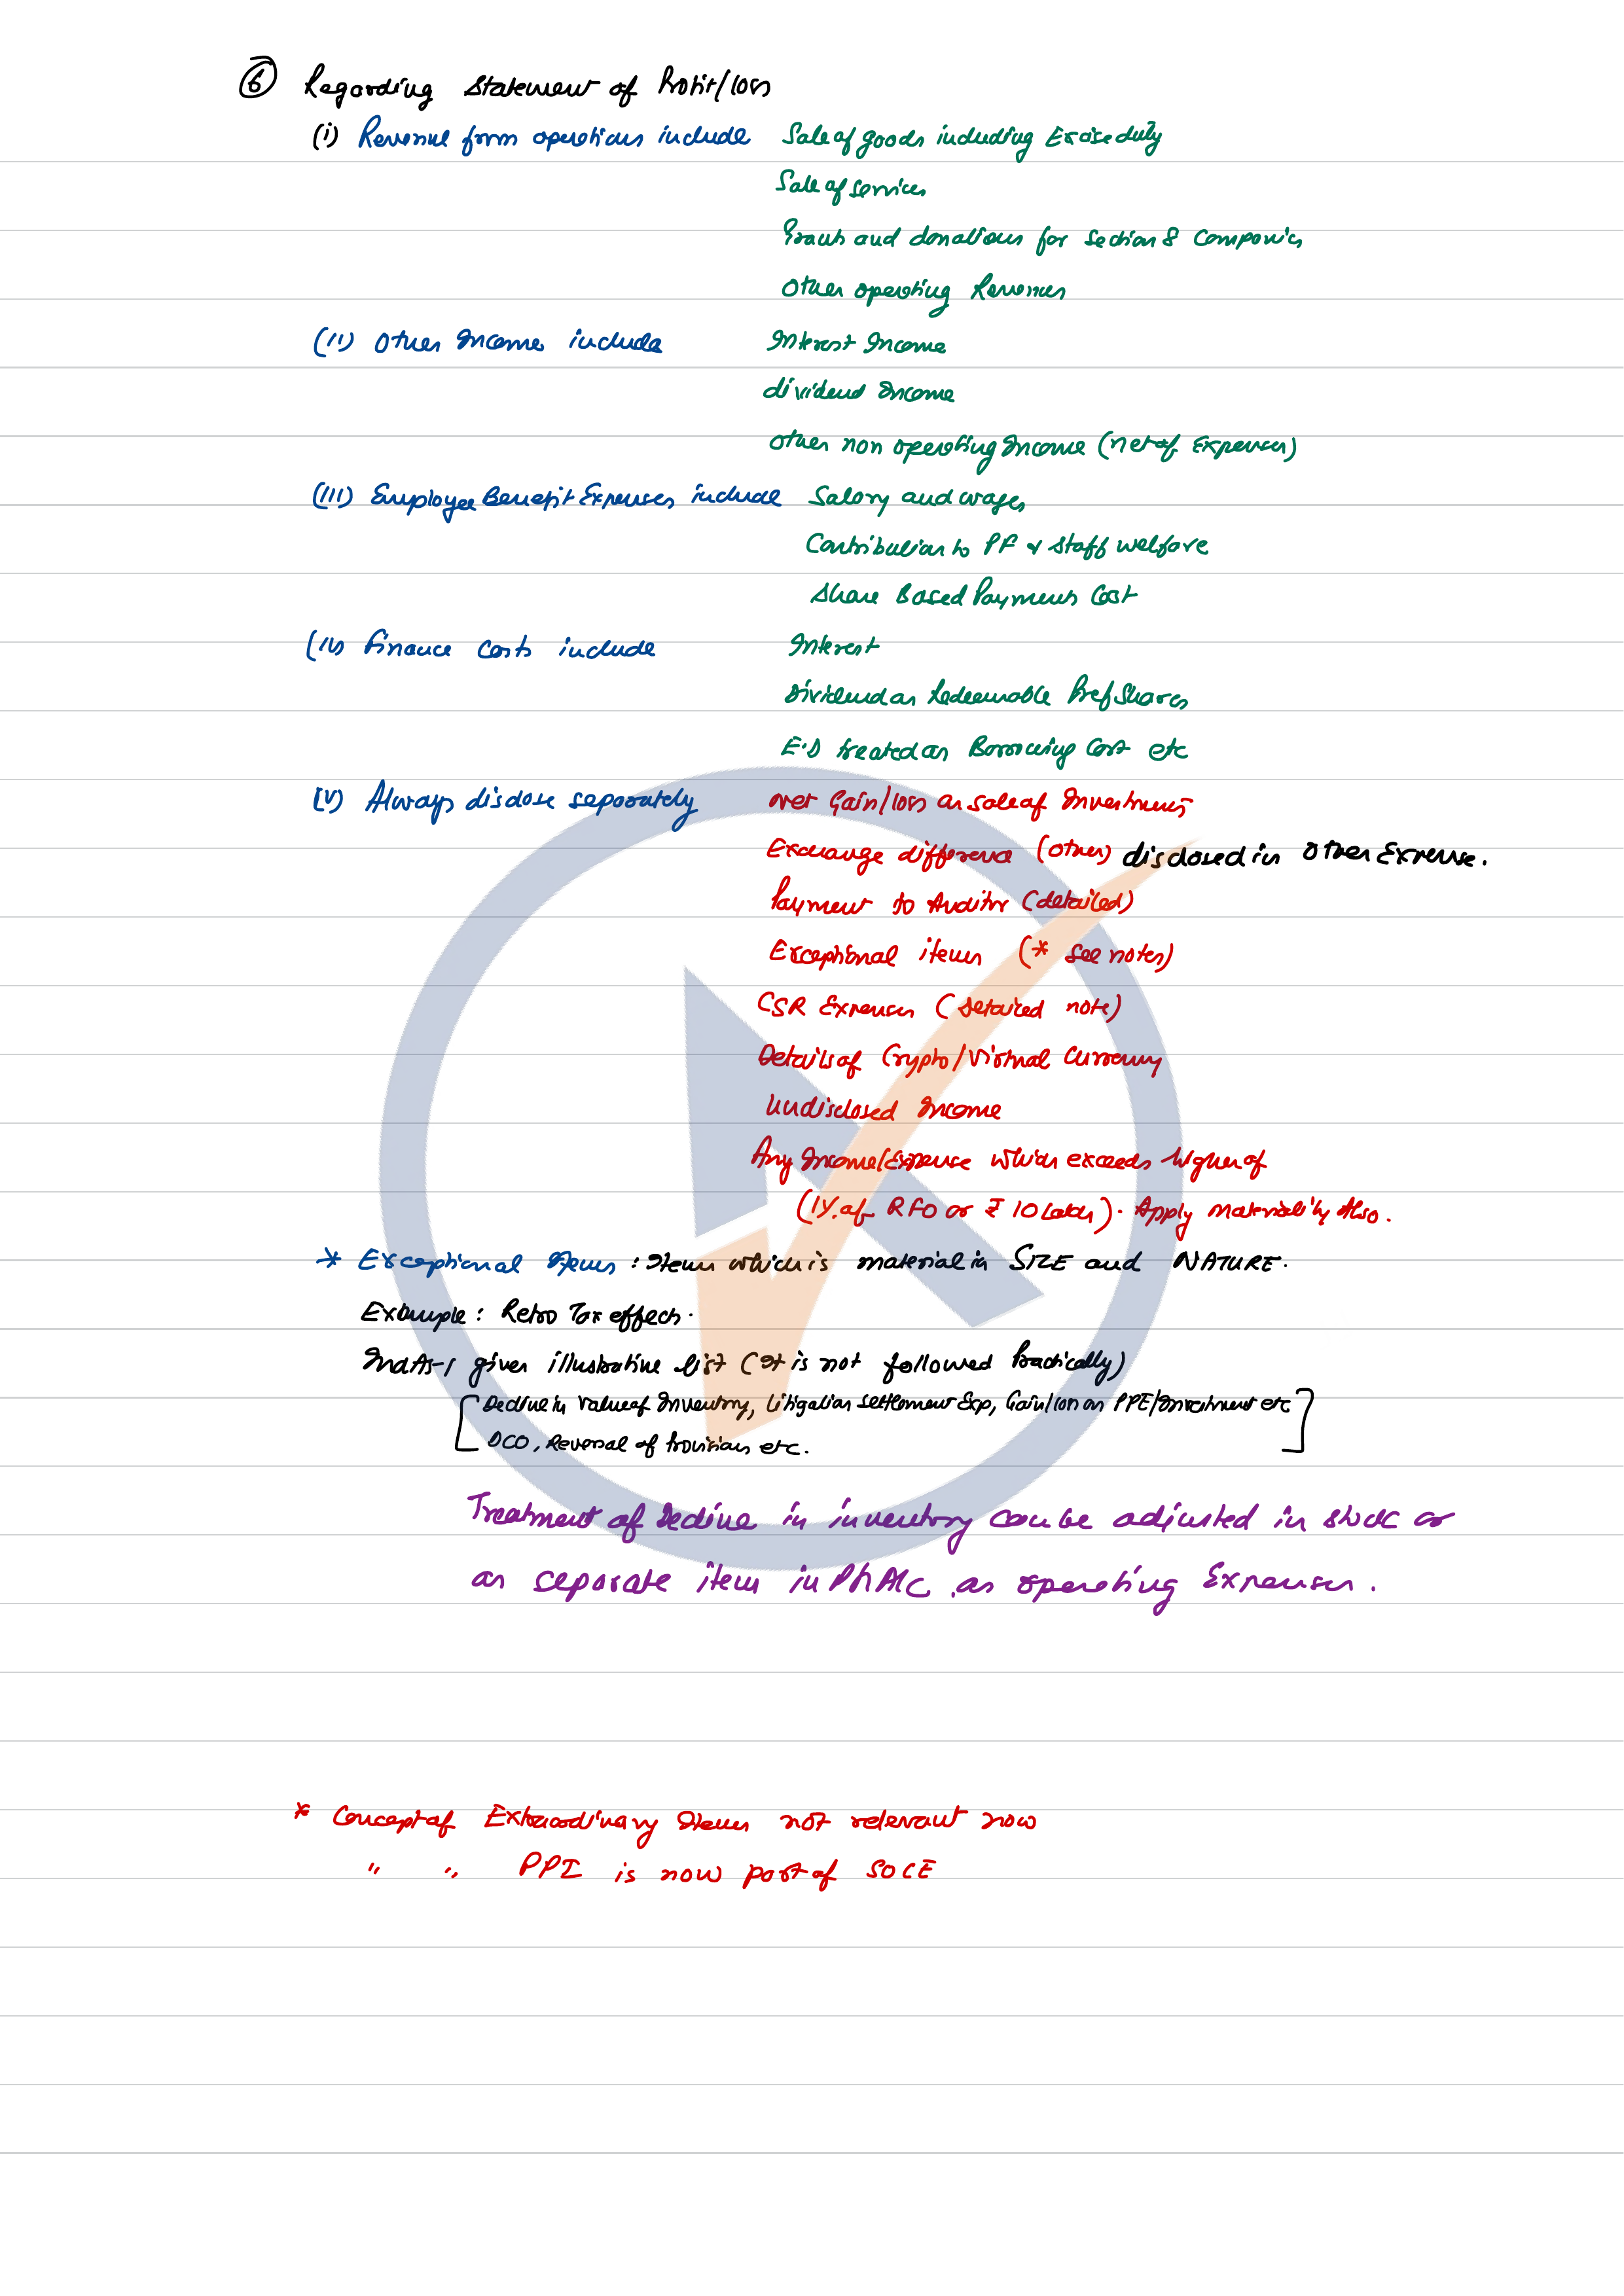 ⑥ Regarding Statement of Profit/loss
(i) Revenue form operations include Sale of goods including Excise duty
Sale of services
Grants and donations for section 8 companies
Other operating Revenues
(II) Other Income include Interest Income
dividend Income
other non operating Income (net of Expenses)
(III) Employee Benefit Expenses include Salary and wages
Contribution to PF & Staff welfare
Share Based Payments Cost
(IV) Finance Costs include Interest
Dividend on Redeemable Pref Shares
E.D treated as Borrowing Cost etc
(V) Always disclose separately net Gain/loss on sale of Investments
Exchange difference (other) disclosed in other Expense.
Payment to Auditor (detailed)
Exceptional items (* see notes)
CSR Expenses (detailed note)
Details of Crypto/Virtual Currency
Undisclosed Income
Any Income/Expense which exceeds higher of
(1% of RFO or ₹ 10 Lakhs). Apply materiality Also.
* Exceptional Items : Items which is material in SIZE and NATURE.
Example : Retro Tax effects.
Ind AS-1 given illustrative list (It is not followed Practically)
[Decline in value of Inventory, Litigation settlement Exp, Gain/loss on PPE/Investment etc
DCO, Reversal of Provisions etc.]
Treatment of Decline in inventory can be adjusted in stock or
as separate item in P&L A/c as operating Expenses.
* Concept of Extraordinary Items not relevant now
" " PPI is now part of SOCE